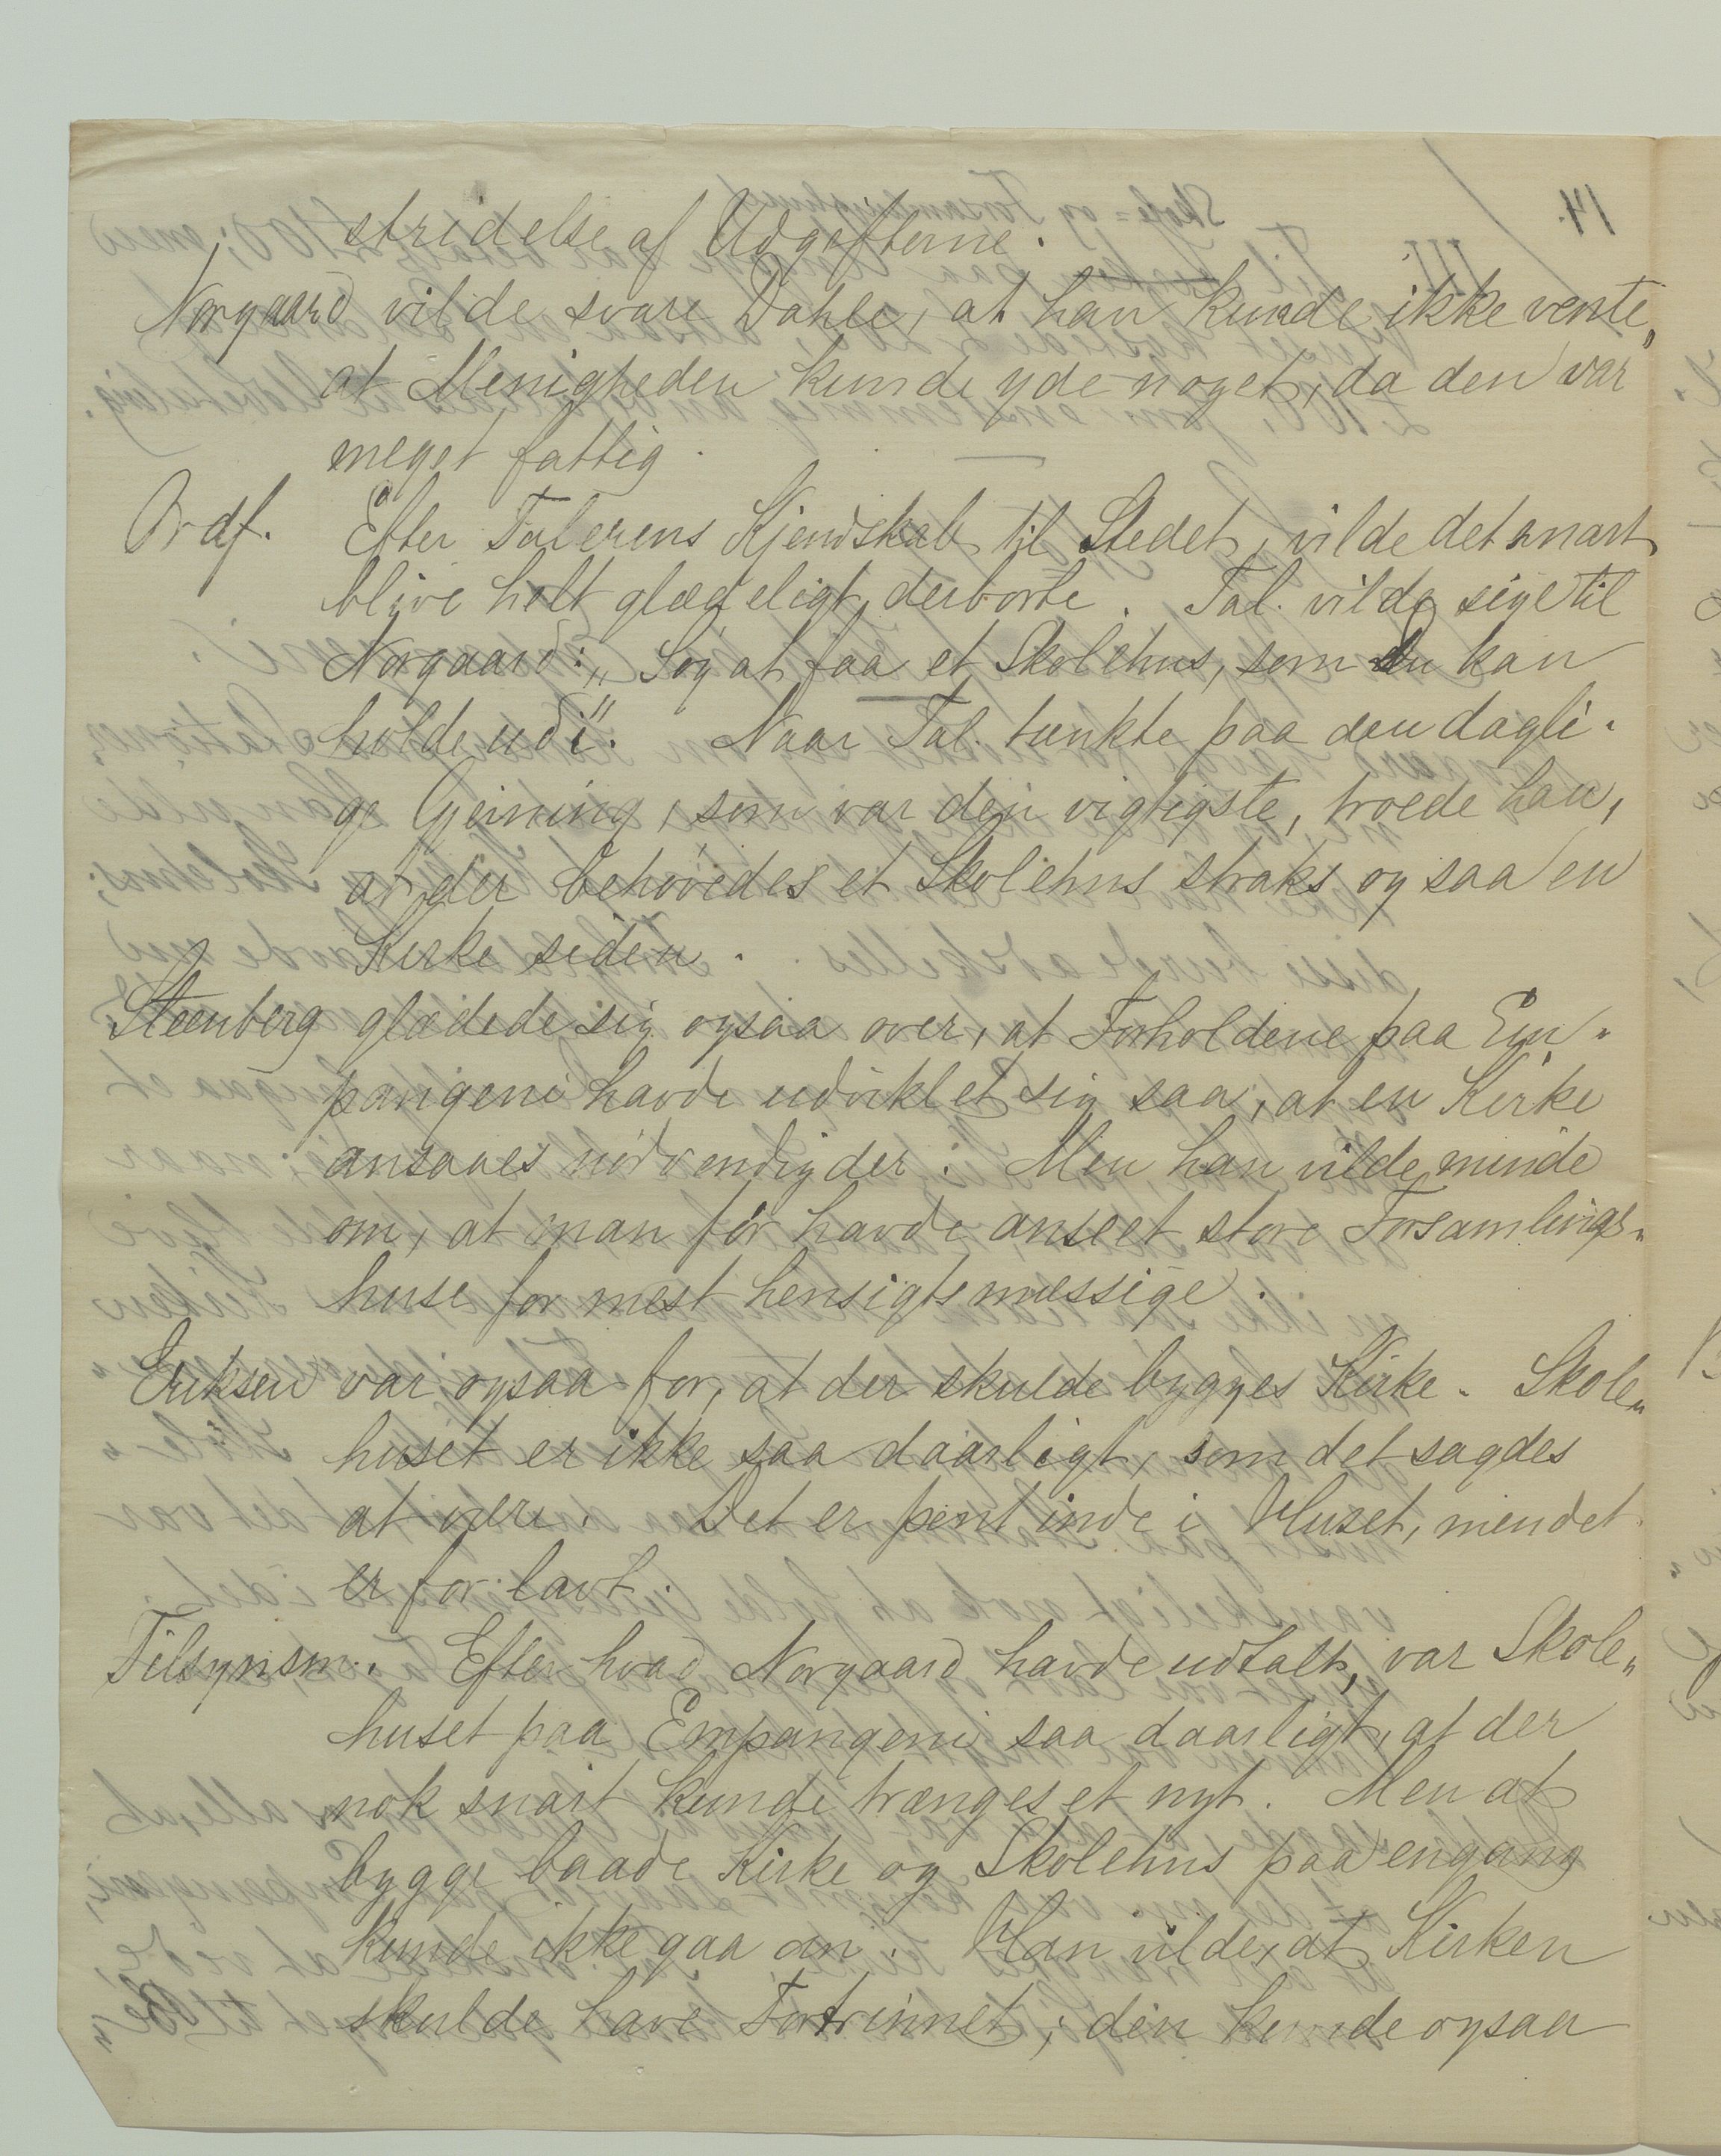 stridelse af Udgifterne.
Norgaard vilde svare Dahle, at han kunde ikke vente,
at Menigheden kunde yde noget, da den var
meget fattig.
Ordf. Efter Talerens Kjendskab til Stedet, vilde det snart
blive helt glædeligt derborte. Tal. vilde sige til
Norgaard: „Søg at faa et Skolehus, som Du kan
holde ud i". Naar Tal. tænkte paa den dagli-
ge Gjerning, som var den vigtigste, troede han,
at der behøvedes et Skolehus straks og saa en
Kirke siden.
Steenberg glædede sig ogsaa over, at Forholdene paa Em-
pangeni havde udviklet sig saa, at en Kirke
ansaaes nødvendig der. Men han vilde minde
om, at man før havde anseet store Forsamlings-
huse for mest hensigtsmæssige.
Eriksen var ogsaa for, at der skulde bygges Kirke. Skole-
huset er ikke saa daarligt, som det sagdes
at være. Det er pent inde i Huset, men det
er for lavt.
Tilsynsm. Efter hvad Norgaard havde udtalt, var Skole-
huset paa Empangeni saa daarligt, at der
nok snart kunde trænges et nyt. Men at
bygge baade Kirke og Skolehus paa engang
kunde ikke gaa an. Han vilde, at Kirken
skulde have Fortrinnet; den kunde ogsaa